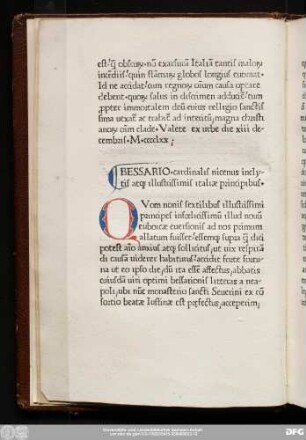 est/ꝗ obscuꝝ·nũ exarsurã Italiã tantis maloꝝ
incẽdiis/quin flãmaꝝ globos longius euomat·
Id ne accidat/eum regnoꝝ oĩum causa optare
debent·quoꝝ salus in discrimen adducit᷑/eum
ꝓpter immortalem deũ cuius religio sanctis
sima uexat᷑ ac trahit᷑ ad interitũ/magna christi
anoꝝ oĩm clade·Valete ex urbe die xiii de
cembris·M·cccclxx;
BESSARIO·cardinalis nicenus incly
tis atqꝫ illustrissimis italiæ principibus·
QVom nonis sextilibus illustrissimi
principes infœlicissimũ illud nouũ
euboicæ euersionis ad nos primum
allatum fuisset/essemqꝫ supra ꝗ dici
potest aĩo anxius atqꝫ sollicitus/ut uix respirã
di causã uiderer habiturus/accidit forte fortu
na ut eo ipso die/dũ ita essẽ affectus/abbatis
cuiusdã uiri optimi bessarionis litteras a nea
poli/ubi nũc monasterio sancti Seuerini ex cõ
sortio beatæ Iustinæ est p̱fectus/acceperim;
DFG